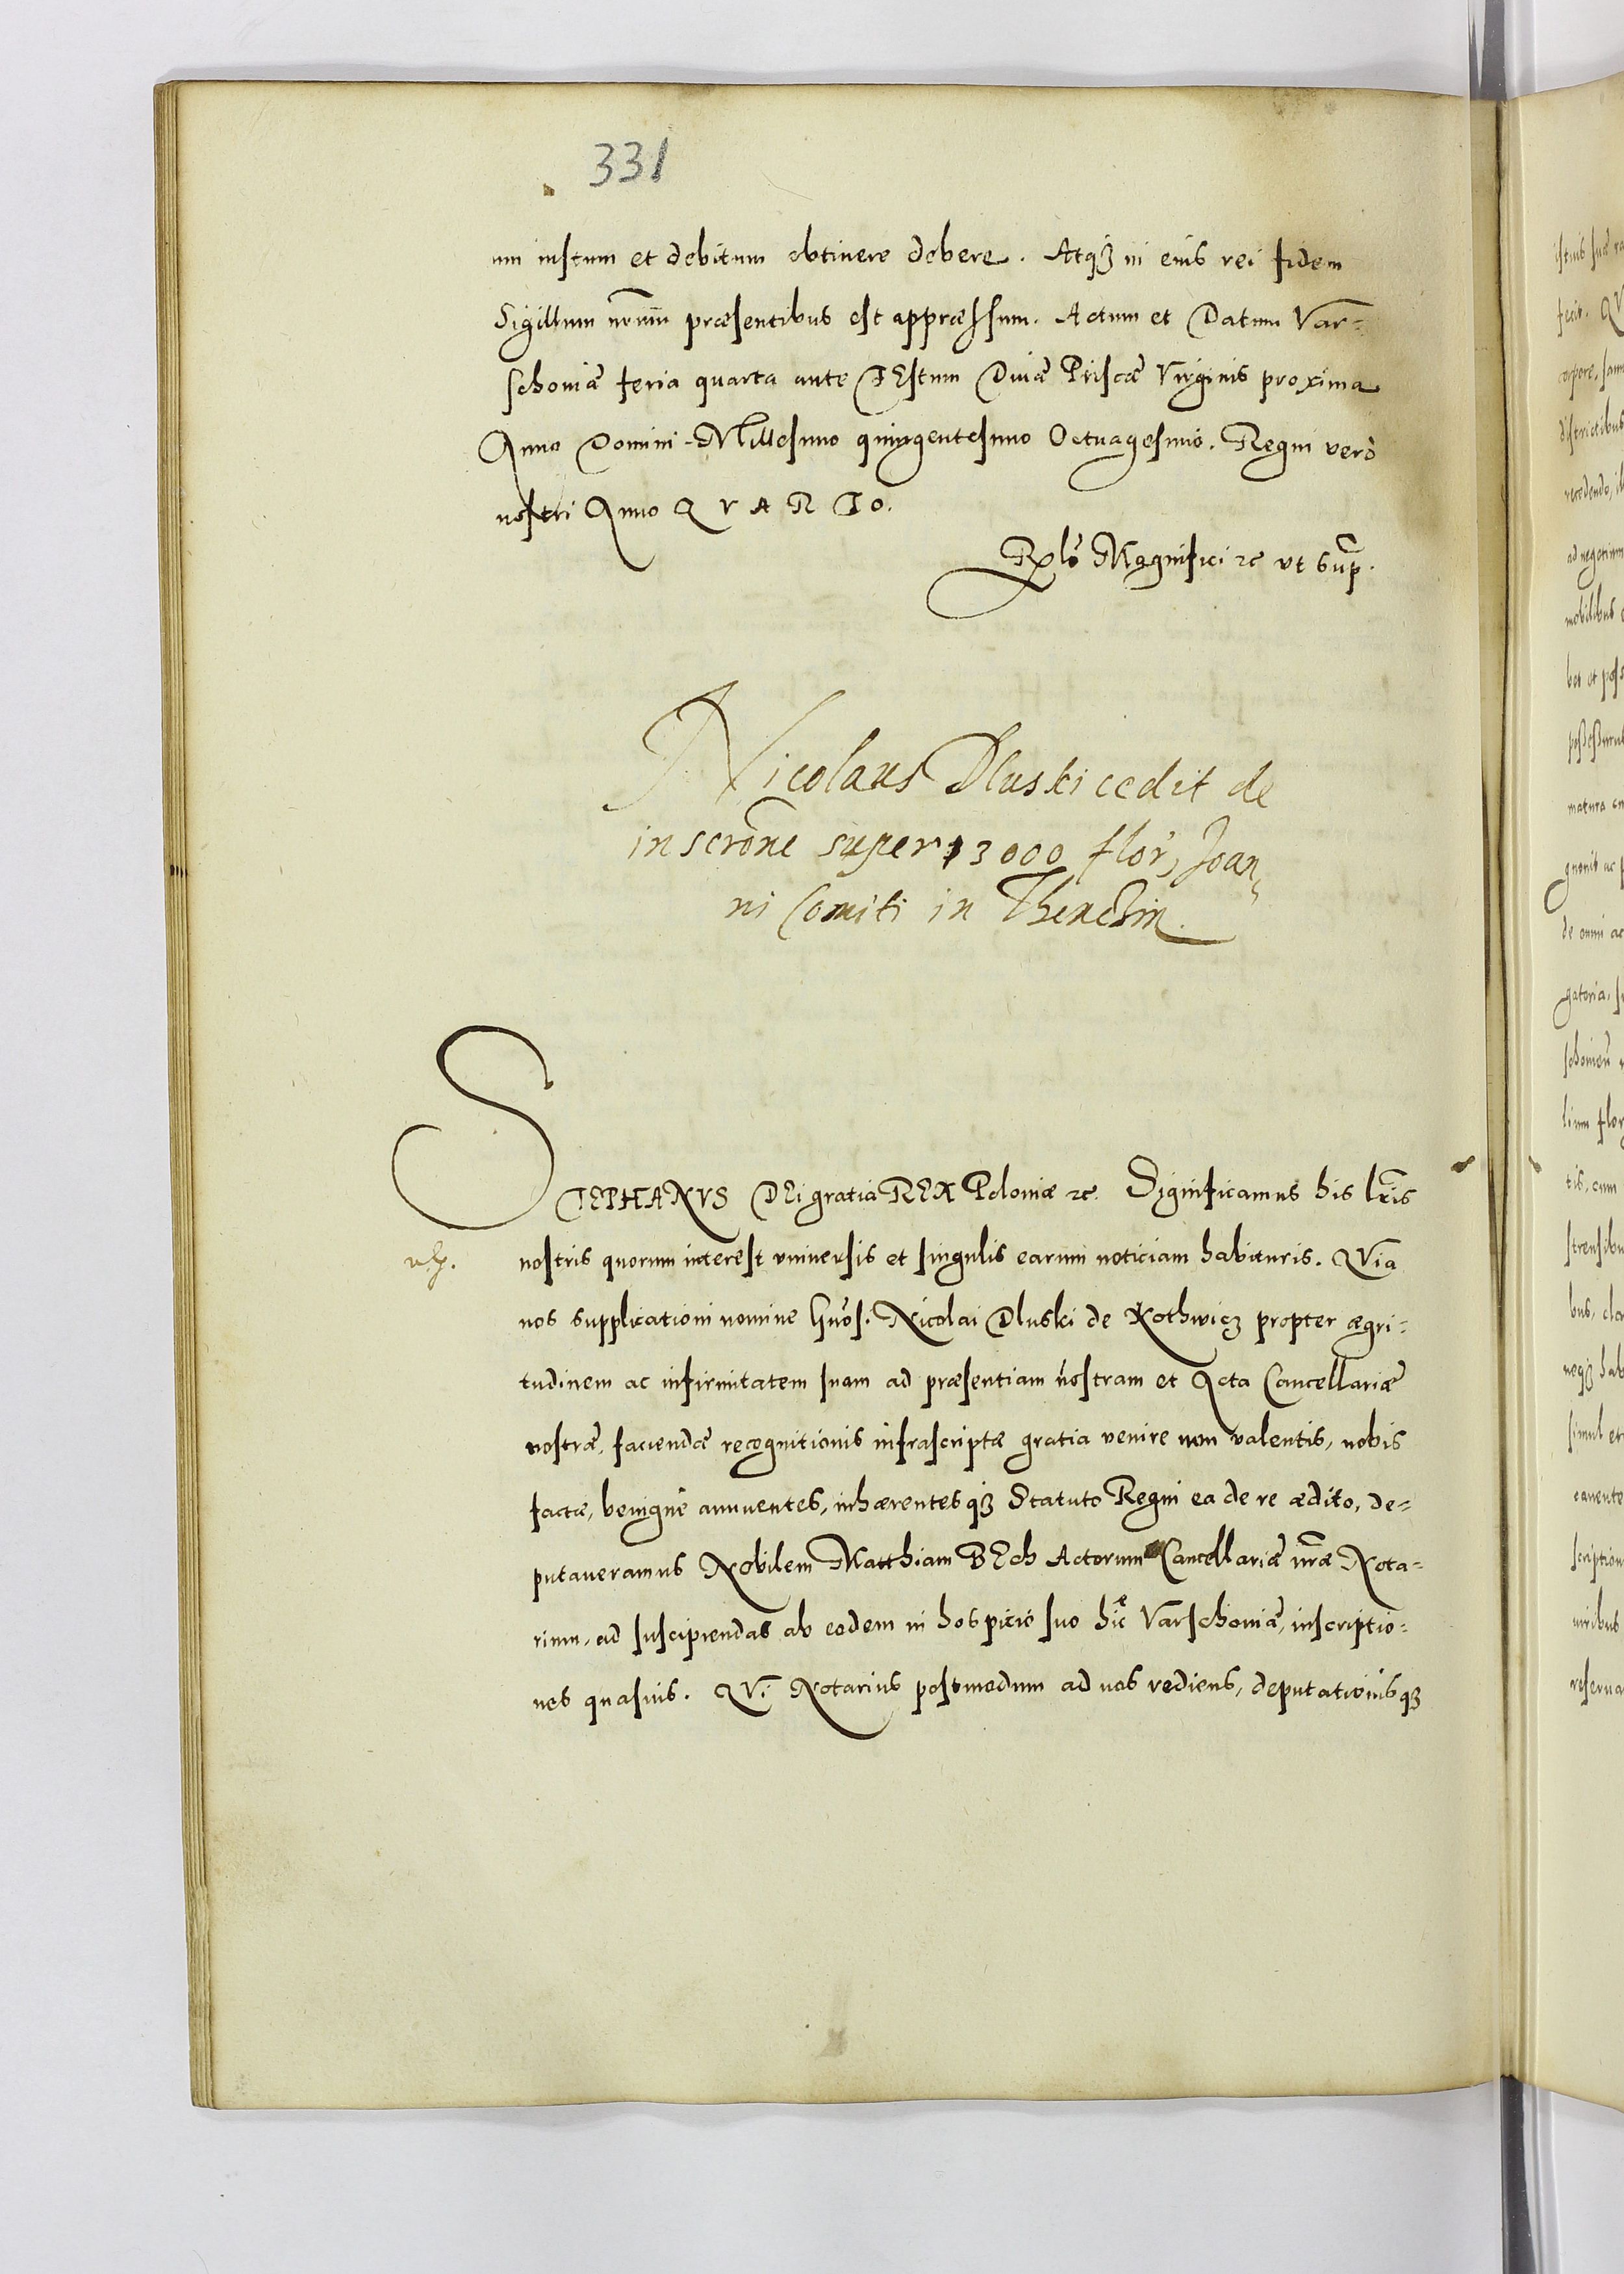 331
um iustum et debitum obtinere debere. Atq3 in eius rei fidem
Sigillum nrum præsentibus est appræssum. Actum et Datum Var=
schoviæ feria quarta ante FEstum Divæ Priscæ Virginis proxima
Anno Domini Millesimo quingentesimo Octuagesimo. Regni verò
nostri Anno QVARTO.
Rlo Magnifici &c ut sup.
Nicolaus Dluski cedit de
inscrone super 3000 flor, Joan=
ni Comiti in Thenczin.
STEPHANVS DEi gratia REX Poloniæ &c. Significamus his lris
nostris quorum interest universis et singulis earum noticiam habituris. QVia
nos supplicationi nomine Gnosi. Nicolai Dluski de Kothwicz propter ægri=
tudinem ac infirmitatem suam ad præsentiam nostram et Acta Cancellariæ
nostræ, faciendæ recognitionis infrascriptæ gratia venire non valentis, nobis
factæ, benignè annuentes, inhærentesq3 Statuto Regni ea de re ædito, de=
putaveramus Nobilem Matthiam BEch Actorum Cancellariæ nræ Nota=
rium, ad suscipiendas ab eodem in hospicio suo hic Varschoviæ, inscriptio=
nes quasvis. QVi Notarius postmodum ad nos rediens, deputationisq3